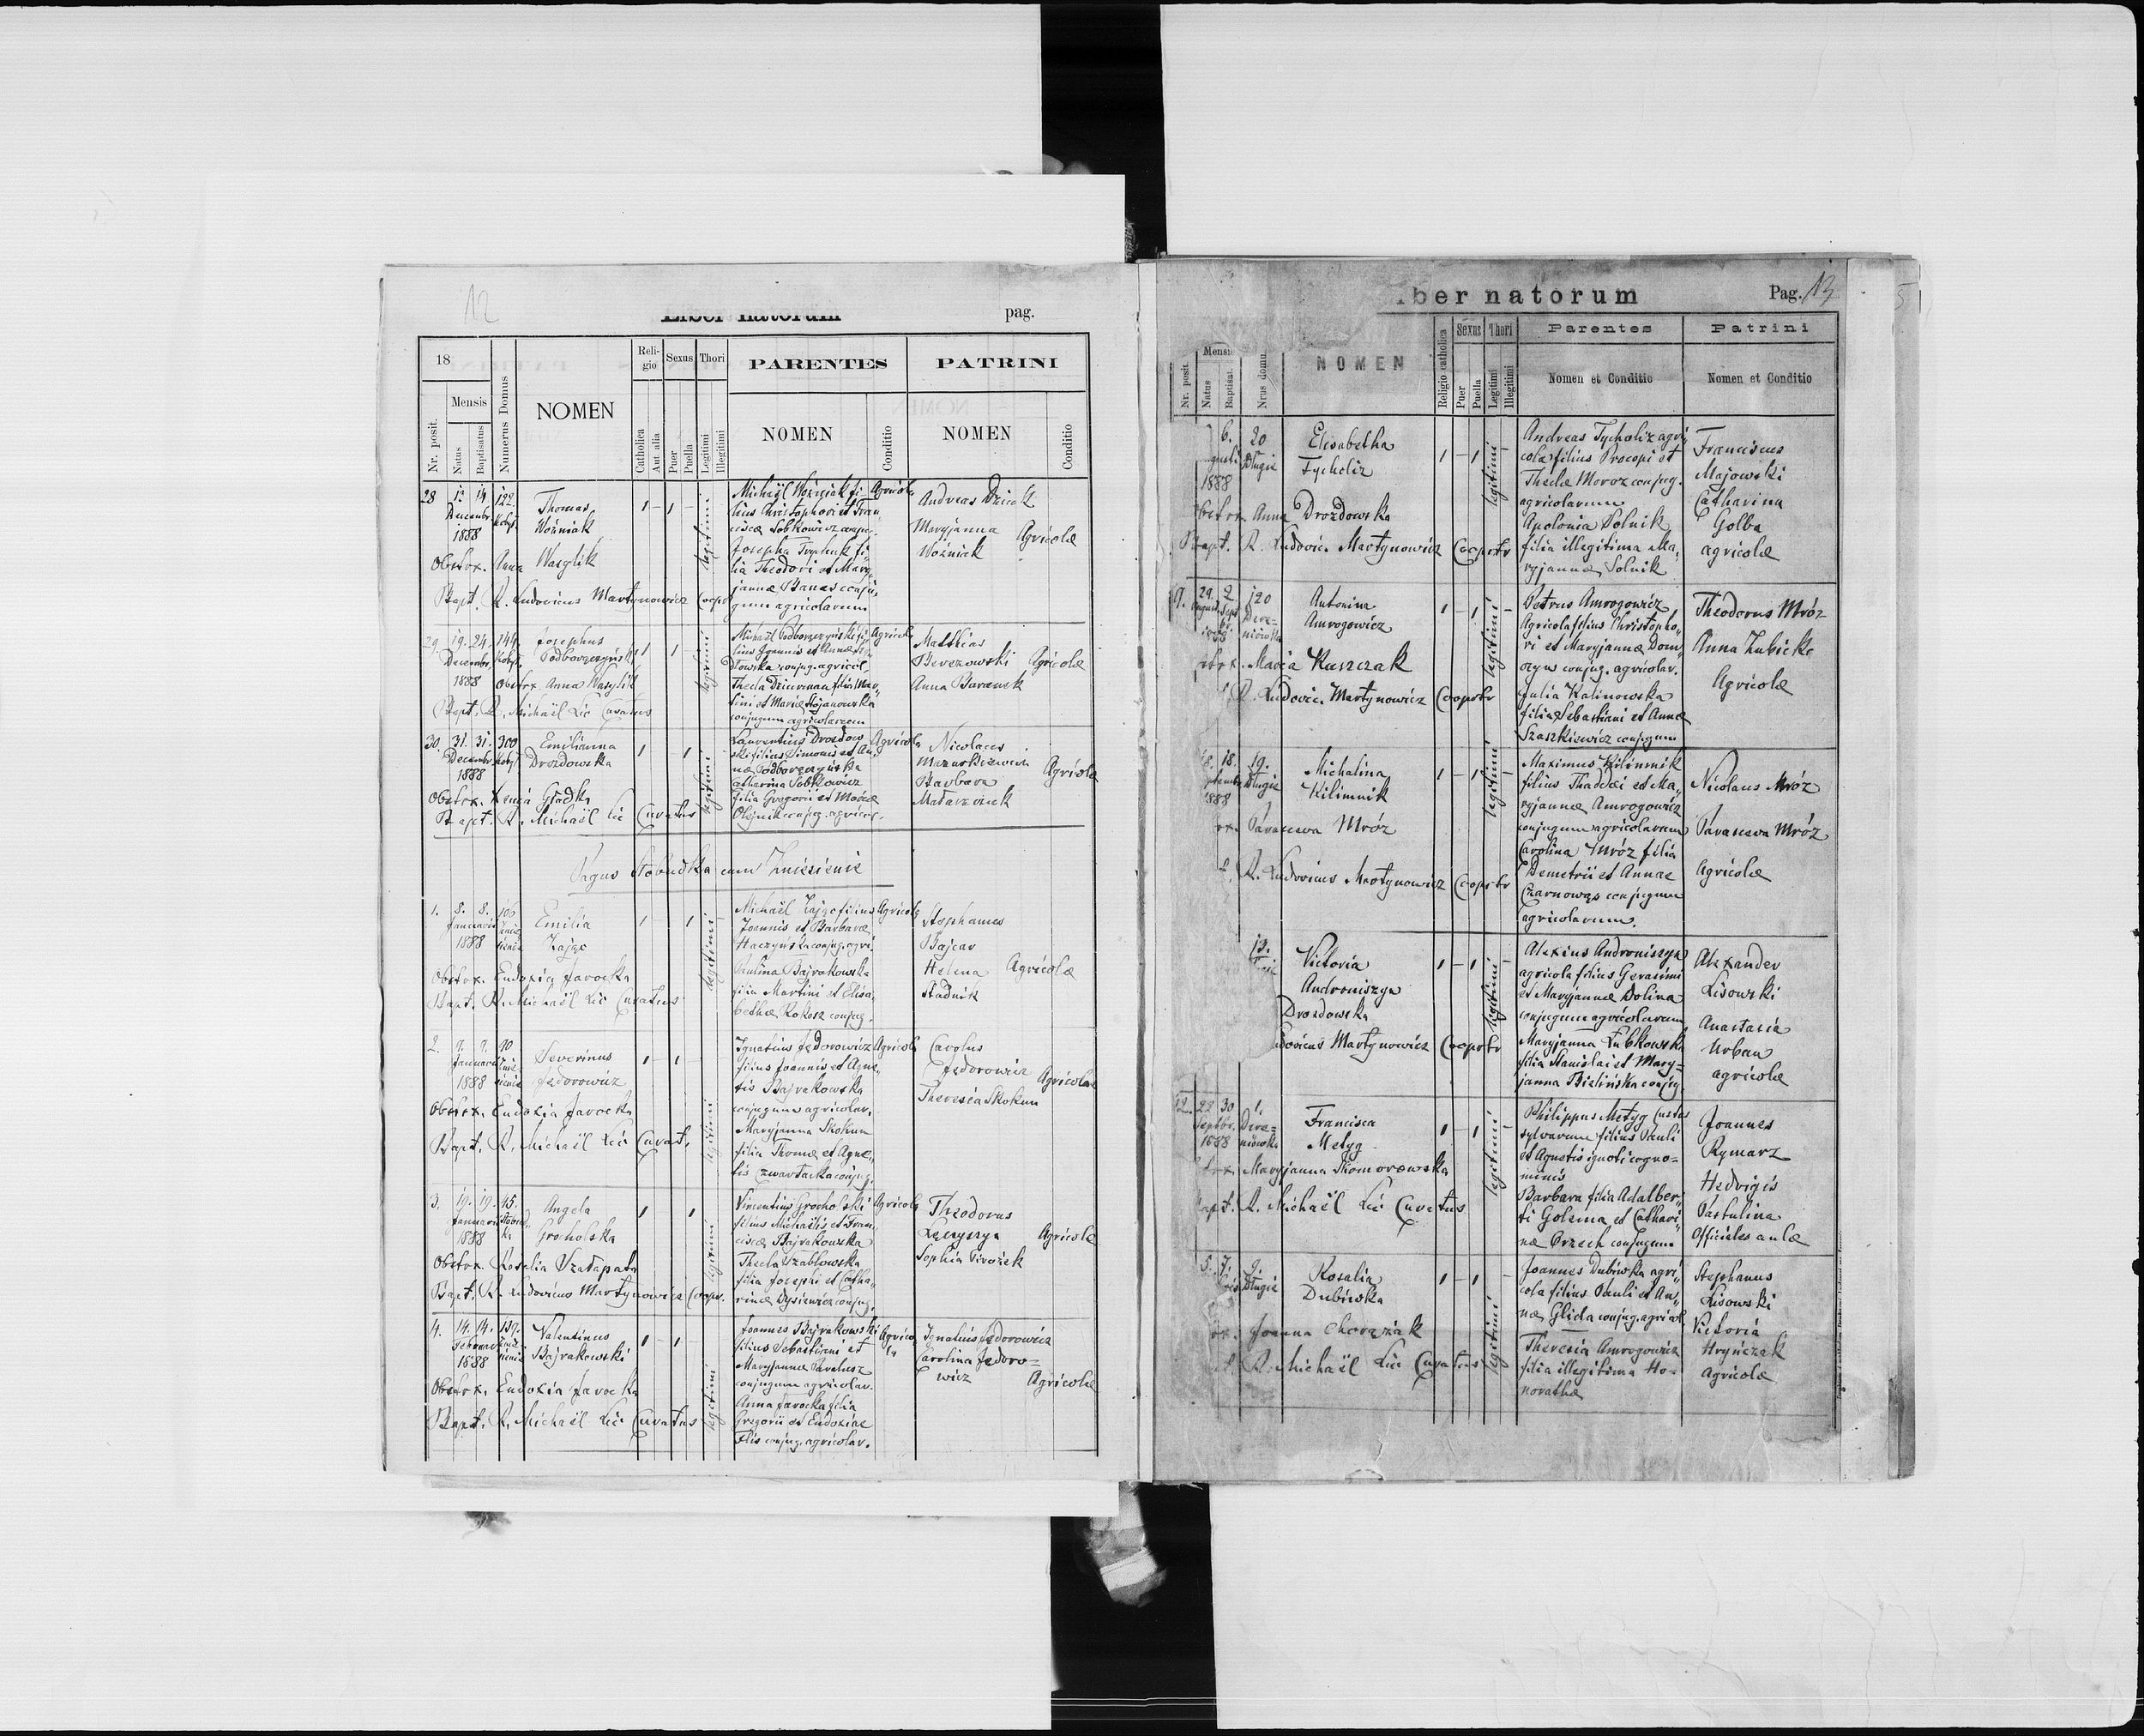 12
Liber natorum
pag.
18
Mensis
Nr. posit.
Natus
Baptisatus
Numerus Domus
NOMEN
Religio
Catholica
Aut alia
Sexus
Puer
Puella
Thori
Legitimi
Illegitimi
PARENTES
NOMEN
Conditio
PATRINI
NOMEN
Conditio
28 14 122
Decembr.
1888
Thomas
Woźniak
Obstox. Anna Wasylik
Bapt. R. Ludovicus Martynowicz Coop.
legitimi
Michaël Woźniak fi-
lius Christophori et Fran
ciscæ Sobkowicz conjug.
Josepha Tryhuk fi
lia Theodori et Mary
jannæ Banas conju,
gum agricolarum
Agricola
Andreas Dzicok
Maryjanna
Woźniak
Agricolæ
29. 19. 24. 144
Decembr.
1888
Josephus
Podborzezyński
Obstox. Anna Wasylik
Bapt. R. Michaël Lic Curatus
legitimi
Michaël Podborzezyński fi
lius Joannis et Annæ
dłowska conjug. agricol.
Thecla Dziurman filia Mar,,
tini et Mariæ Stojanowska
conjugum agricolarum
Agricola
Matthias
Berezowski
Anna Baranek
Agricolæ
30. 31. 31. 300
Decembr.
1888
Emilianna
Drozdowska
Obstox. Xenia Gładka
Bapt. R. Michaël Lic Curatus
legitimi
Laurentius Drozdow
ski filius Simonis et An
næ Podborzezyńska
Catharina Sobkowicz
filia Gregorii et Mariæ
Olejnik conjug. agricol.
Agricola
Nicolaus
Barbara
Agricolæ
Pagus Stobudka cum Zniesienie
1. 8. 8. 106
Januarii
1888
Emilia
Zając
Obstox. Eudoxia Jarocka
Bapt. R. Michaël Lic Curatus
legitimi
Michaël Zając filius
Joannis et Barbaræ
Haczyńska conjug. agri.
Paulina Bajrakowska
filia Martini et Elisa,
bethæ Kokosz conjug.
Agricola
Stephanus
Bajcar
Helena
Stadnik
Agricolæ
2. 9. 9. 90
Januarii
1888
Severinus
Fedorowicz
Obstox. Eudoxia Jarocka
Bapt. R. Michaël Lic Curat.
legitimi
Ignatius Fedorowicz
filius Joannis et Agne,,
tis Bajrakowska
conjugum agricolar.
Maryjanna Skokun
filia Thomæ et Agne,,
tis Czwartacka conjug.
Agricola
Carolus
Fedorowicz
Theresia Skokun
Agricolæ
3. 19. 19. 45.
Januarii
1888
Angela
Grocholska
Obstox. Rosalia Wzatapata
Bapt. R. Ludovicus Martynowicz Coop.
legitimi
Vincentius Grocholski
filius Michaëlis et Fran,
ciscæ Bajrakowska
Thecla Szablowska
filia Josephi et Catha,,
rinæ Dysiewicz conjug.
Agricola
Theodorus
Sophia Pirożek
Agricolæ
4. 14. 14. 139.
Februarii
1888
Valentinus
Bajrakowski
Obstox. Eudoxia Jarocka
Bapt. R. Michaël Lic Curatus
legitimi
Joannes Bajrakowski
filius Sebastiani et
Maryjannæ Pavlusz
conjugum agricolar.
Anna Jarocka filia
Gregorii et Eudoxiæ
Flis conjug. agricolar.
Agrico,
la
Ignatius Fedorowicz
Carolina Fedoro=
wicz
Agricolæ
iber natorum
Pag. 13
Nr. posit.
Mensi
Natus
Baptisat.
Nrus domu
NOMEN
Religio catholica
Sexus
Puer
Puella
Thori
Legitimi
Illegitimi
Parentes
Nomen et Conditio
Patrini
Nomen et Conditio
6. 20
Długie
1888
Elisabetha
Tycholiz
Anna Drozdowska
Bapt. R. Ludovic. Martynowicz Cooprtr
legitimi
Andreas Tycholiz agri,
cola filius Procopi et
Theclæ Moroz conjug.
agricolarum
Apolonia Solnik
filia illegitima Ma,
ryjannæ Solnik
Franciscus
Majowski
Catharina
Golba
agricolæ
29. 2. 120
Antonina
Amrogowicz
Maria Kuszczak
R. Ludovic. Martynowicz Cooprtr
legitimi
Petrus Amrogowicz
Agricola filius Christopho,,
ri et Maryjannæ Dom,,
conjug. agricolar.
Julia Kalinowska
filia Sebastiani et Annæ
Szaszkiewicz conjugum
Theodorus Mróz
Anna Zubicka
Agricolæ
18. 18. 19.
Długie
1888
Michalina
Kilimnik
Parascwa Mróz
R. Ludovicus Martynowicz Cooprtr
legitimi
Maximus Kilimnik
filius Thaddei et Ma,
ryjannæ Amrogowicz
conjugum agricolarum
Carolina Mróz filia
Demetrii et Annæ
Czarnowąs conjugum
agricolarum.
Nicolaus Mróz
Parascwa Mróz
Agricolæ
13.
Victoria
Androniszyn
Drozdowska
dovicus Martynowicz Cooprtr
legitimi
Alexius Androniszyn
agricola filius Gerasimi
et Maryjannæ Dolina
conjugum agricolarum
Maryjanna Lubkowska
filia Stanislai et Mary=
janna Bielińska conjug.
Alexander
Lisowski
Anastasia
Urban
agricolæ
12. 22 30 1.
Septbr.
1888
Dere=
niówka
Francisca
Metyg
Maryjanna Skomorowska
R. Michaël Lic Curatus
legitimi
Philippus Metyg Custos
sylvarum filius Pauli
et Agnetis ignoti cogno=
minis
Barbara filia Adalber,,
ti Golema et Cathari,,
næ Orzech conjugum
Joannes
Rymarz
Hedvigis
Pastulina
Officiales aulæ
5. 7. 9.
Długie
Rosalia
Dubiwska
Joanna Chorzzak
R. Michaël Lic Curatus
legitimi
Joannes Dubiwska agri,
cola filius Pauli et An,,
næ Glida conjug. agricol.
Theresia Amrogowicz
filia illegitima Ho-
norathæ
Stephanus
Lisowski
Victoria
Hryńczak
agricolæ